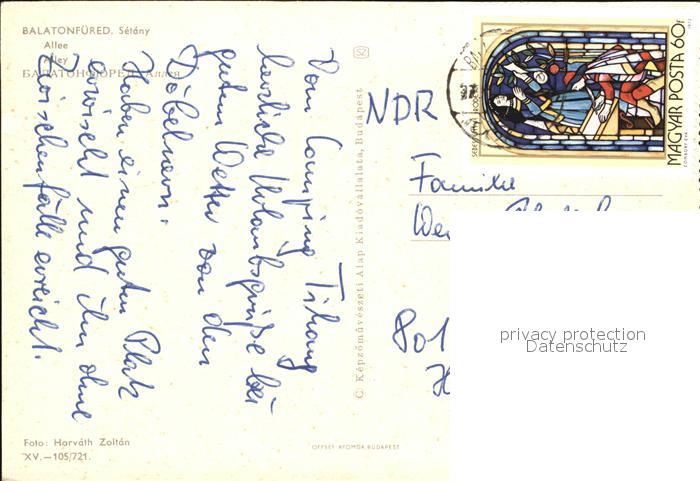 BALATONFÜRED. Sétány
Allee
Alley
БАЛАТОНФЮРЕД. Аллея
Vom Camping Tihany
herzliche Urlaubsgrüße bei
gutem Wetter von den
Döbelnern.
Haben einen guten Platz
erwischt und ihn ohne
Zwischenfälle erreicht.
Foto: Horváth Zoltán
XV.—105/721.
C Képzőművészeti Alap Kiadóvállalata, Budapest
OFFSET NYOMDA BUDAPEST
MAGYAR POSTA 60f
NDR
Familie
801
privacy protection
Datenschutz